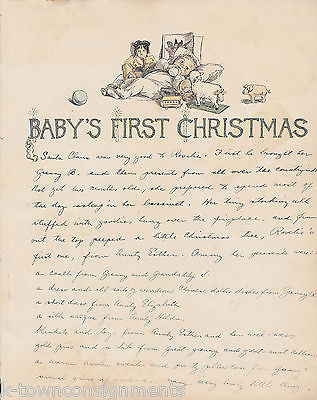 BABY'S FIRST CHRISTMAS
Santa Claus was very good to Rosalie. First he brought her
Granny B. and then presents from all over the countryside
Not yet two months old, she prepared to spend most of
the day asleep in her bassinet. Her tiny stocking well
stuffed with goodies hung over the fireplace, and from
out the top peeped a little Christmas tree, Rosalie's
first one, from Aunty Esther. Among her presents were:
a coat from Granny and Grandaddy S.
a dress and all sorts of Chinese dishes from Granny B
a short dress from Aunty Elizabeth
a silk from Aunty Hilda
and from Aunty Esther and her
gold pins and a bib from Great-granny and great aunt
a warm woolen sweater and pretty from
many lovely little
k-townconsignments